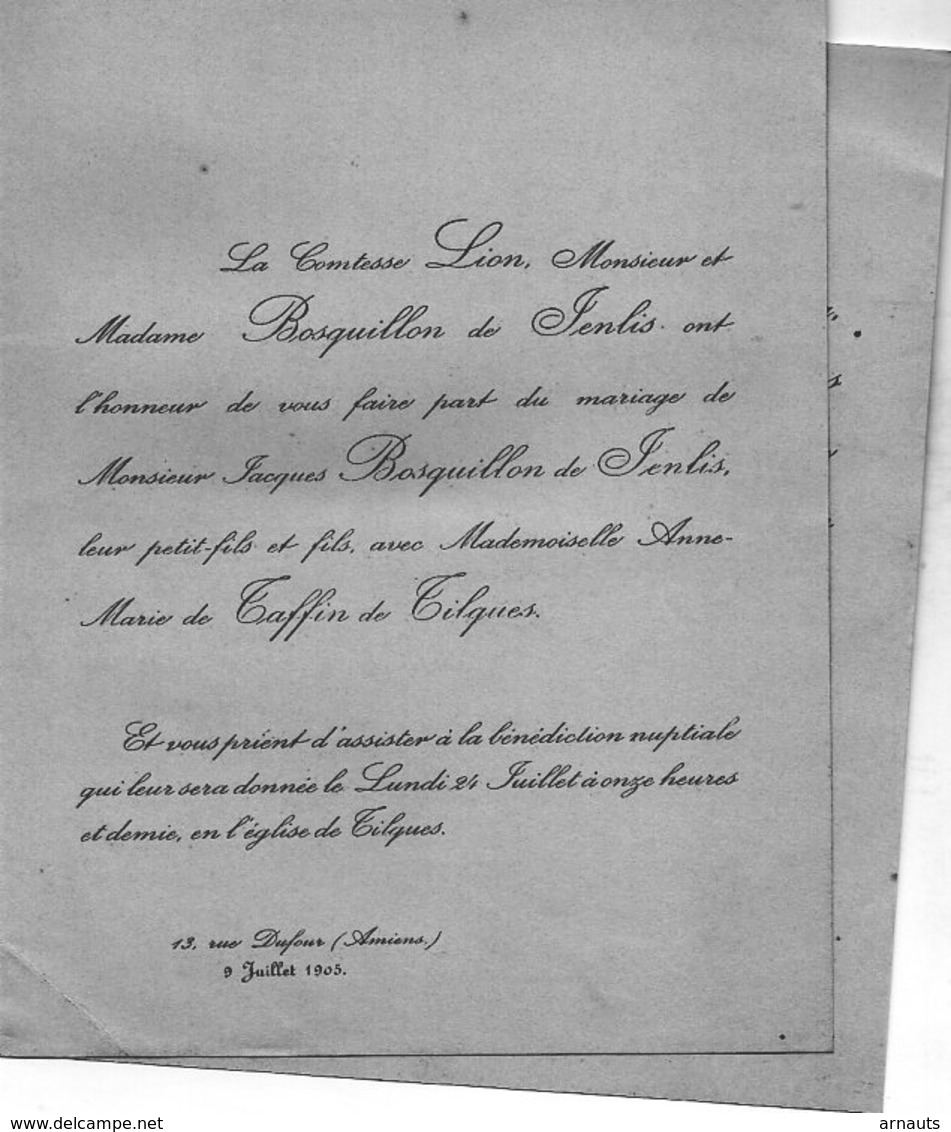 La Comtesse Lion, Monsieur et
Madame Bosquillon de Jenlis ont
l'honneur de vous faire part du mariage de
Monsieur Jacques Bosquillon de Jenlis,
leur petit-fils et fils, avec Mademoiselle Anne-
Marie de Taffin de Tilques.
Et vous prient d'assister à la bénédiction nuptiale
qui leur sera donnée le Lundi 24 Juillet à onze heures
et demie, en l'église de Tilques.
13, rue Dufour (Amiens.)
9 Juillet 1905.
www.delcampe.net
arnauts